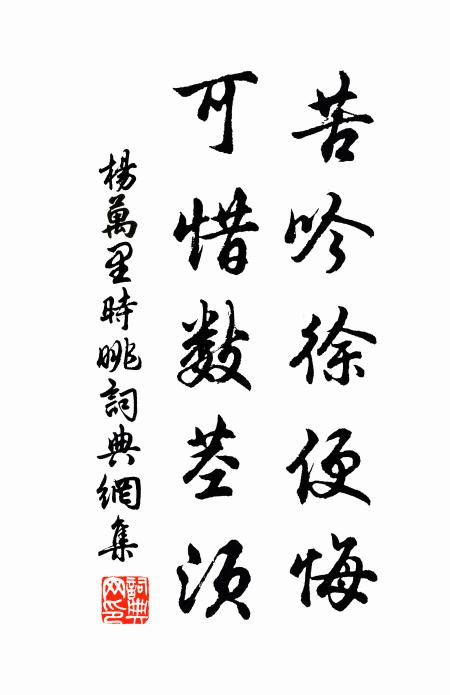 苦吟徐便悔
可惜數茎須
楊萬里時晀詞典網集
詞典網印